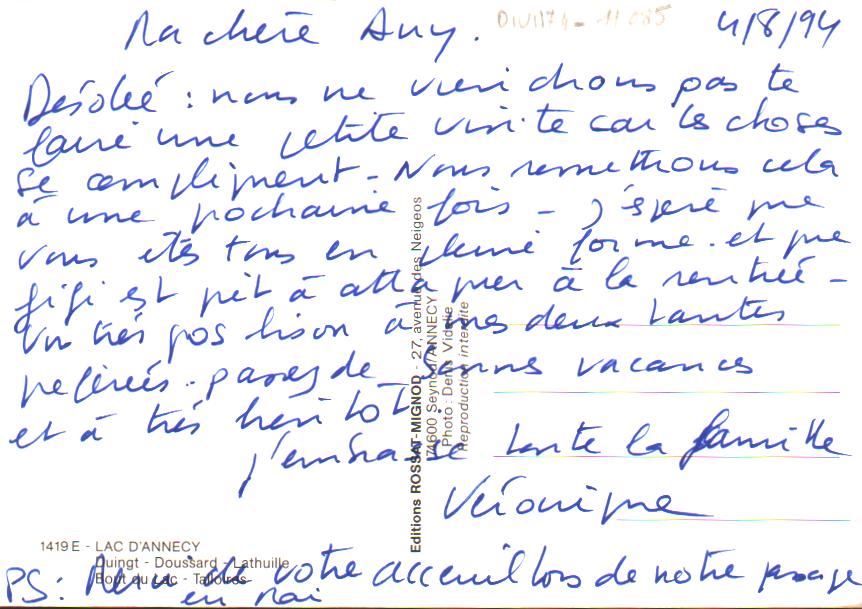 Ma chère Any.
4/8/94
Désolée : nous ne viendrons pas te
faire une petite visite car les choses
se compliquent - Nous remettrons cela
à une prochaine fois - j'espère que
vous êtes tous en pleine forme. et que
gigi est prêt à attaquer à la rentrée -
Un très gros bison à mes deux tantes
préférées. passez de bonnes vacances
et à très bientôt.
j'embrasse toute la famille
Véronique
Editions ROSSAT-MIGNOD - 27, avenue des Neigeos
74600 Seynod/ANNECY
Photo : Denis Vidalie
Reproduction interdite
1419 E - LAC D'ANNECY
Duingt - Doussard - Lathuille
Bout du Lac - Talloires
PS : Merci de votre acceuil lors de notre passage
en mai